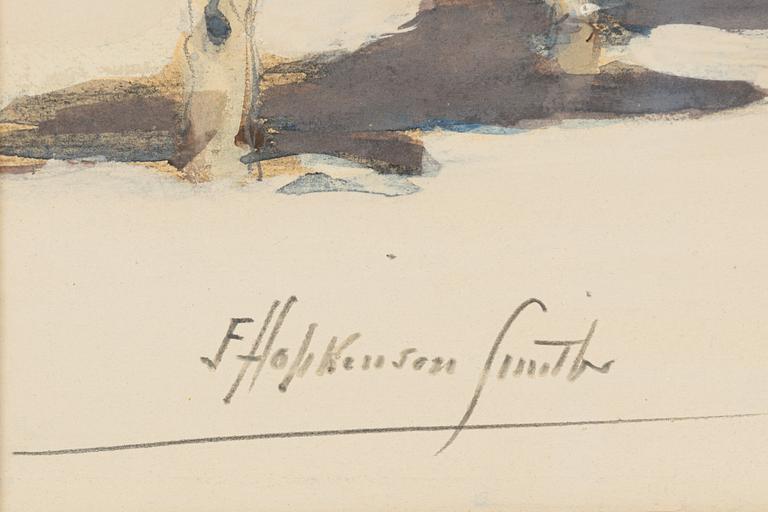 F Hopkinson Smith